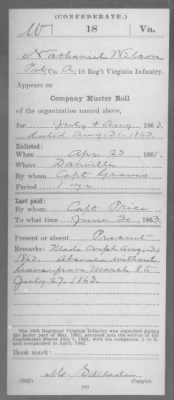 (CONFEDERATE.)
W 18 Va.
Nathaniel Wilson
Co. A, 18 Reg't Virginia Infantry.
Appears on
Company Muster Roll
of the organization named above,
for July & Aug, 1863.
dated Aug. 31, 1863.
Enlisted:
When Apr. 23, 1861.
Where Danville
By whom Capt. Graves
Period 1 yr.
Last paid:
By whom Capt. Price
To what time June 30, 1863.
Present or absent Present
Remarks: Made Corpl. Aug.
1863. Absence without
leave from March 8 to
July 27, 1863.
The 18th Regiment Virginia Infantry was organized during
Confederate States July 1, 1861,
reorganized in April, 1862.
Book mark:
(642) Copyist.